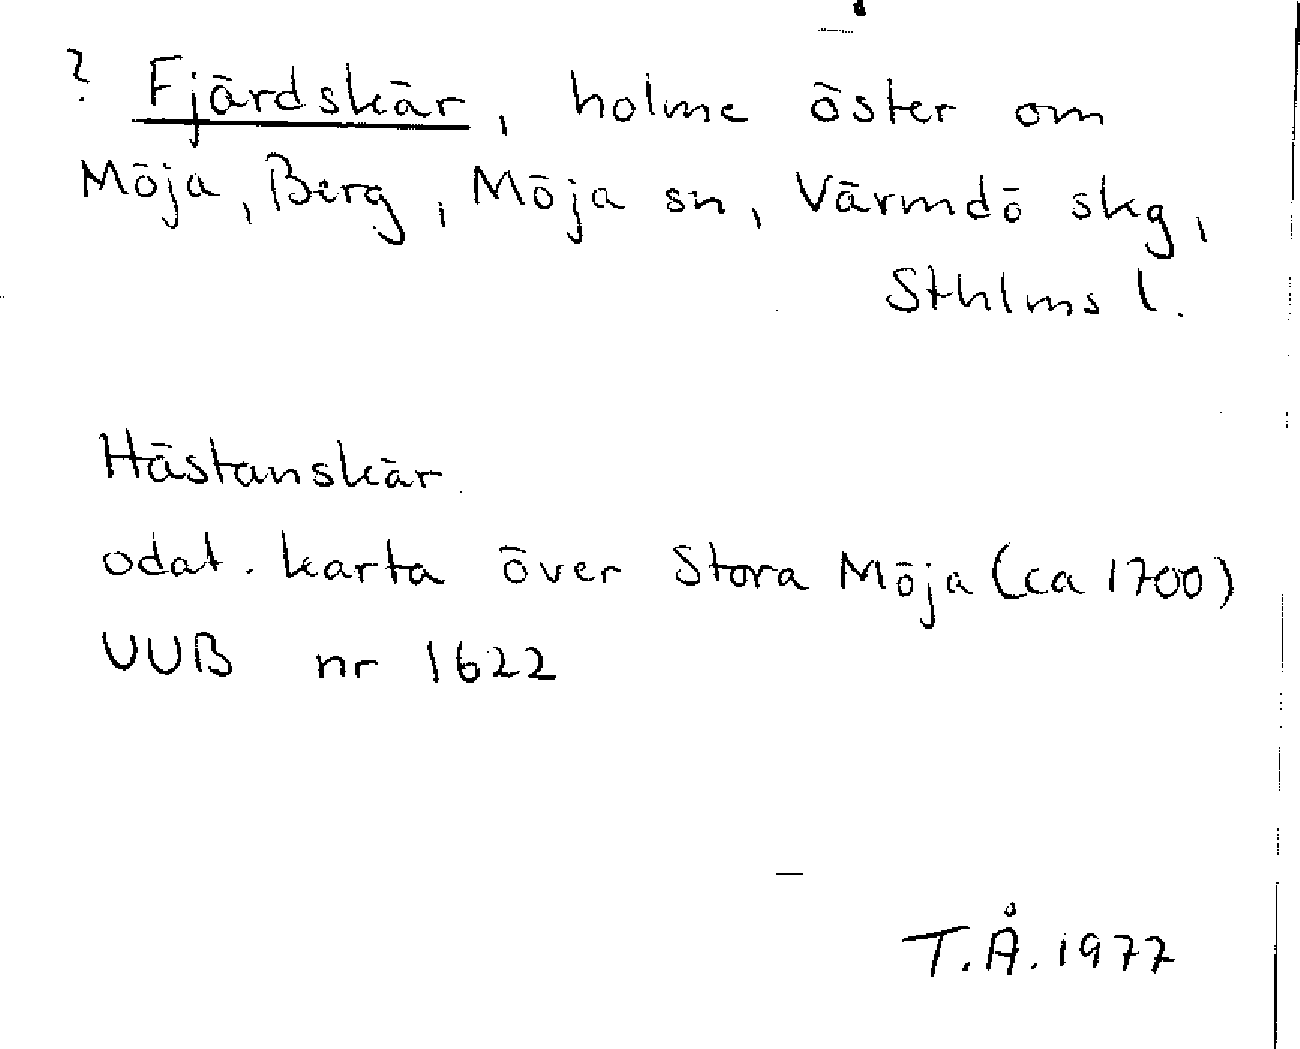 ? Fjärdskär, holme öster om
Möja, Berg, Möja sn, Värmdö skg,
Sthlms l.
Hästanskär
odat. karta över Stora Möja (ca 1700)
UUB nr 1622
T.Å. 1977